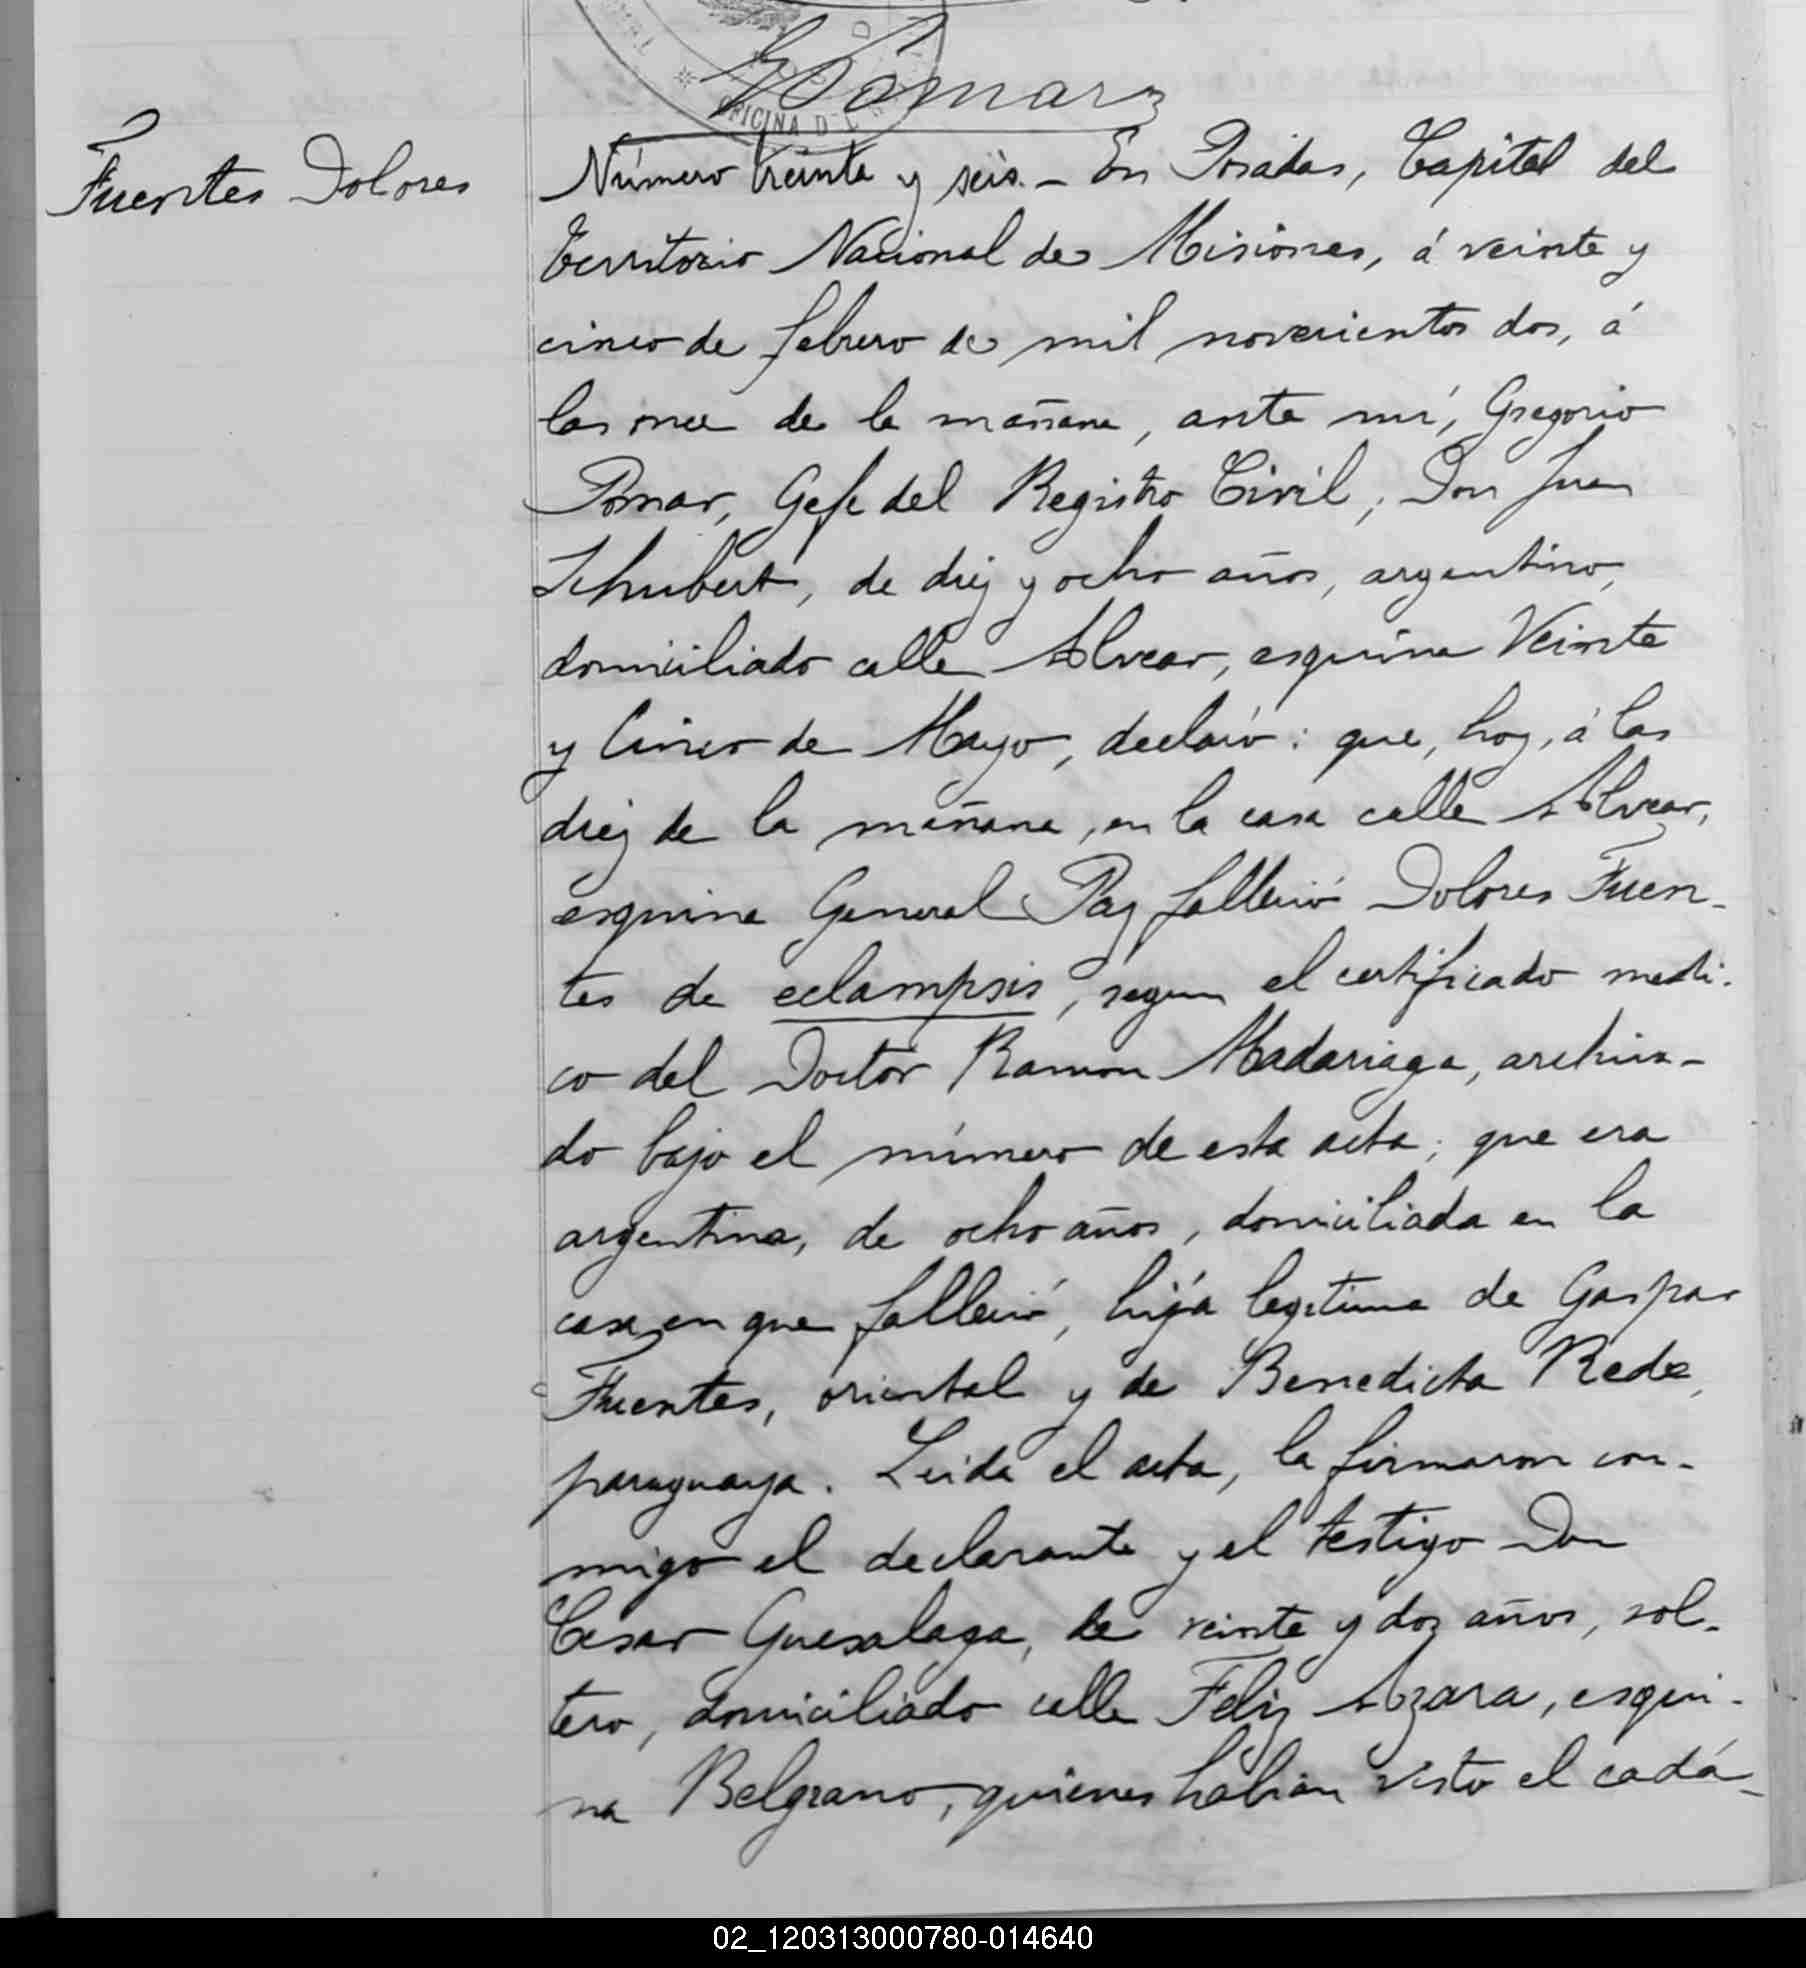 G Pomar
OFICINA DEL
Fuentes Dolores
Número treinta y seis. - En Posadas, Capital del
Territorio Nacional de Misiones, á veinte y
cinco de febrero de mil novecientos dos, á
las once de la mañana, ante mí, Gregorio
Pomar, Gefe del Registro Civil, Don Juan
Schubert, de diez y ocho años, argentino,
domiciliado calle Alvear, esquina Veinte
y Cinco de Mayo, declaró: que, hoy, á las
diez de la mañana, en la casa calle Alvear,
esquina General Paz falleció Dolores Fuen-
tes de eclampsis, segun el certificado medi-
co del Doctor Ramon Madariaga, archiva-
do bajo el número de esta acta; que era
argentina, de ocho años, domiciliada en la
casa en que falleció, hija legitima de Gaspar
Fuentes, oriental y de Benedicta Rede,
paraguaya. Leida el acta, la firmaron con-
migo el declarante y el testigo Don
Cesar Guesalaga, de veinte y dos años, sol-
tero, domiciliado calle Feliz Azara, esqui-
na Belgrano, quienes habian visto el cadá-
02_120313000780-014640